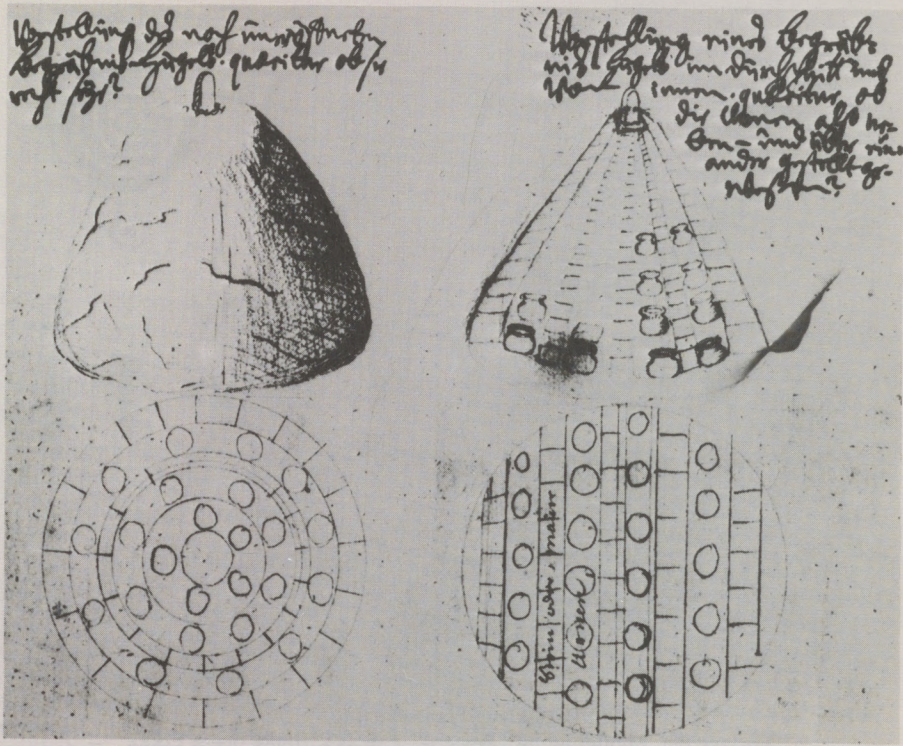 Vorstellung des noch uneröffneten
begräbnis-Hügels. quaeritur ob sie
recht seye?
Vorstellung eines begräb-
nis hügels im durchschnitt und
von innen. quaeritur ob
die Urnen also ne-
ben- und über ein-
ander gestellt ge-
wesen?
Stein oder mauer
Urnen